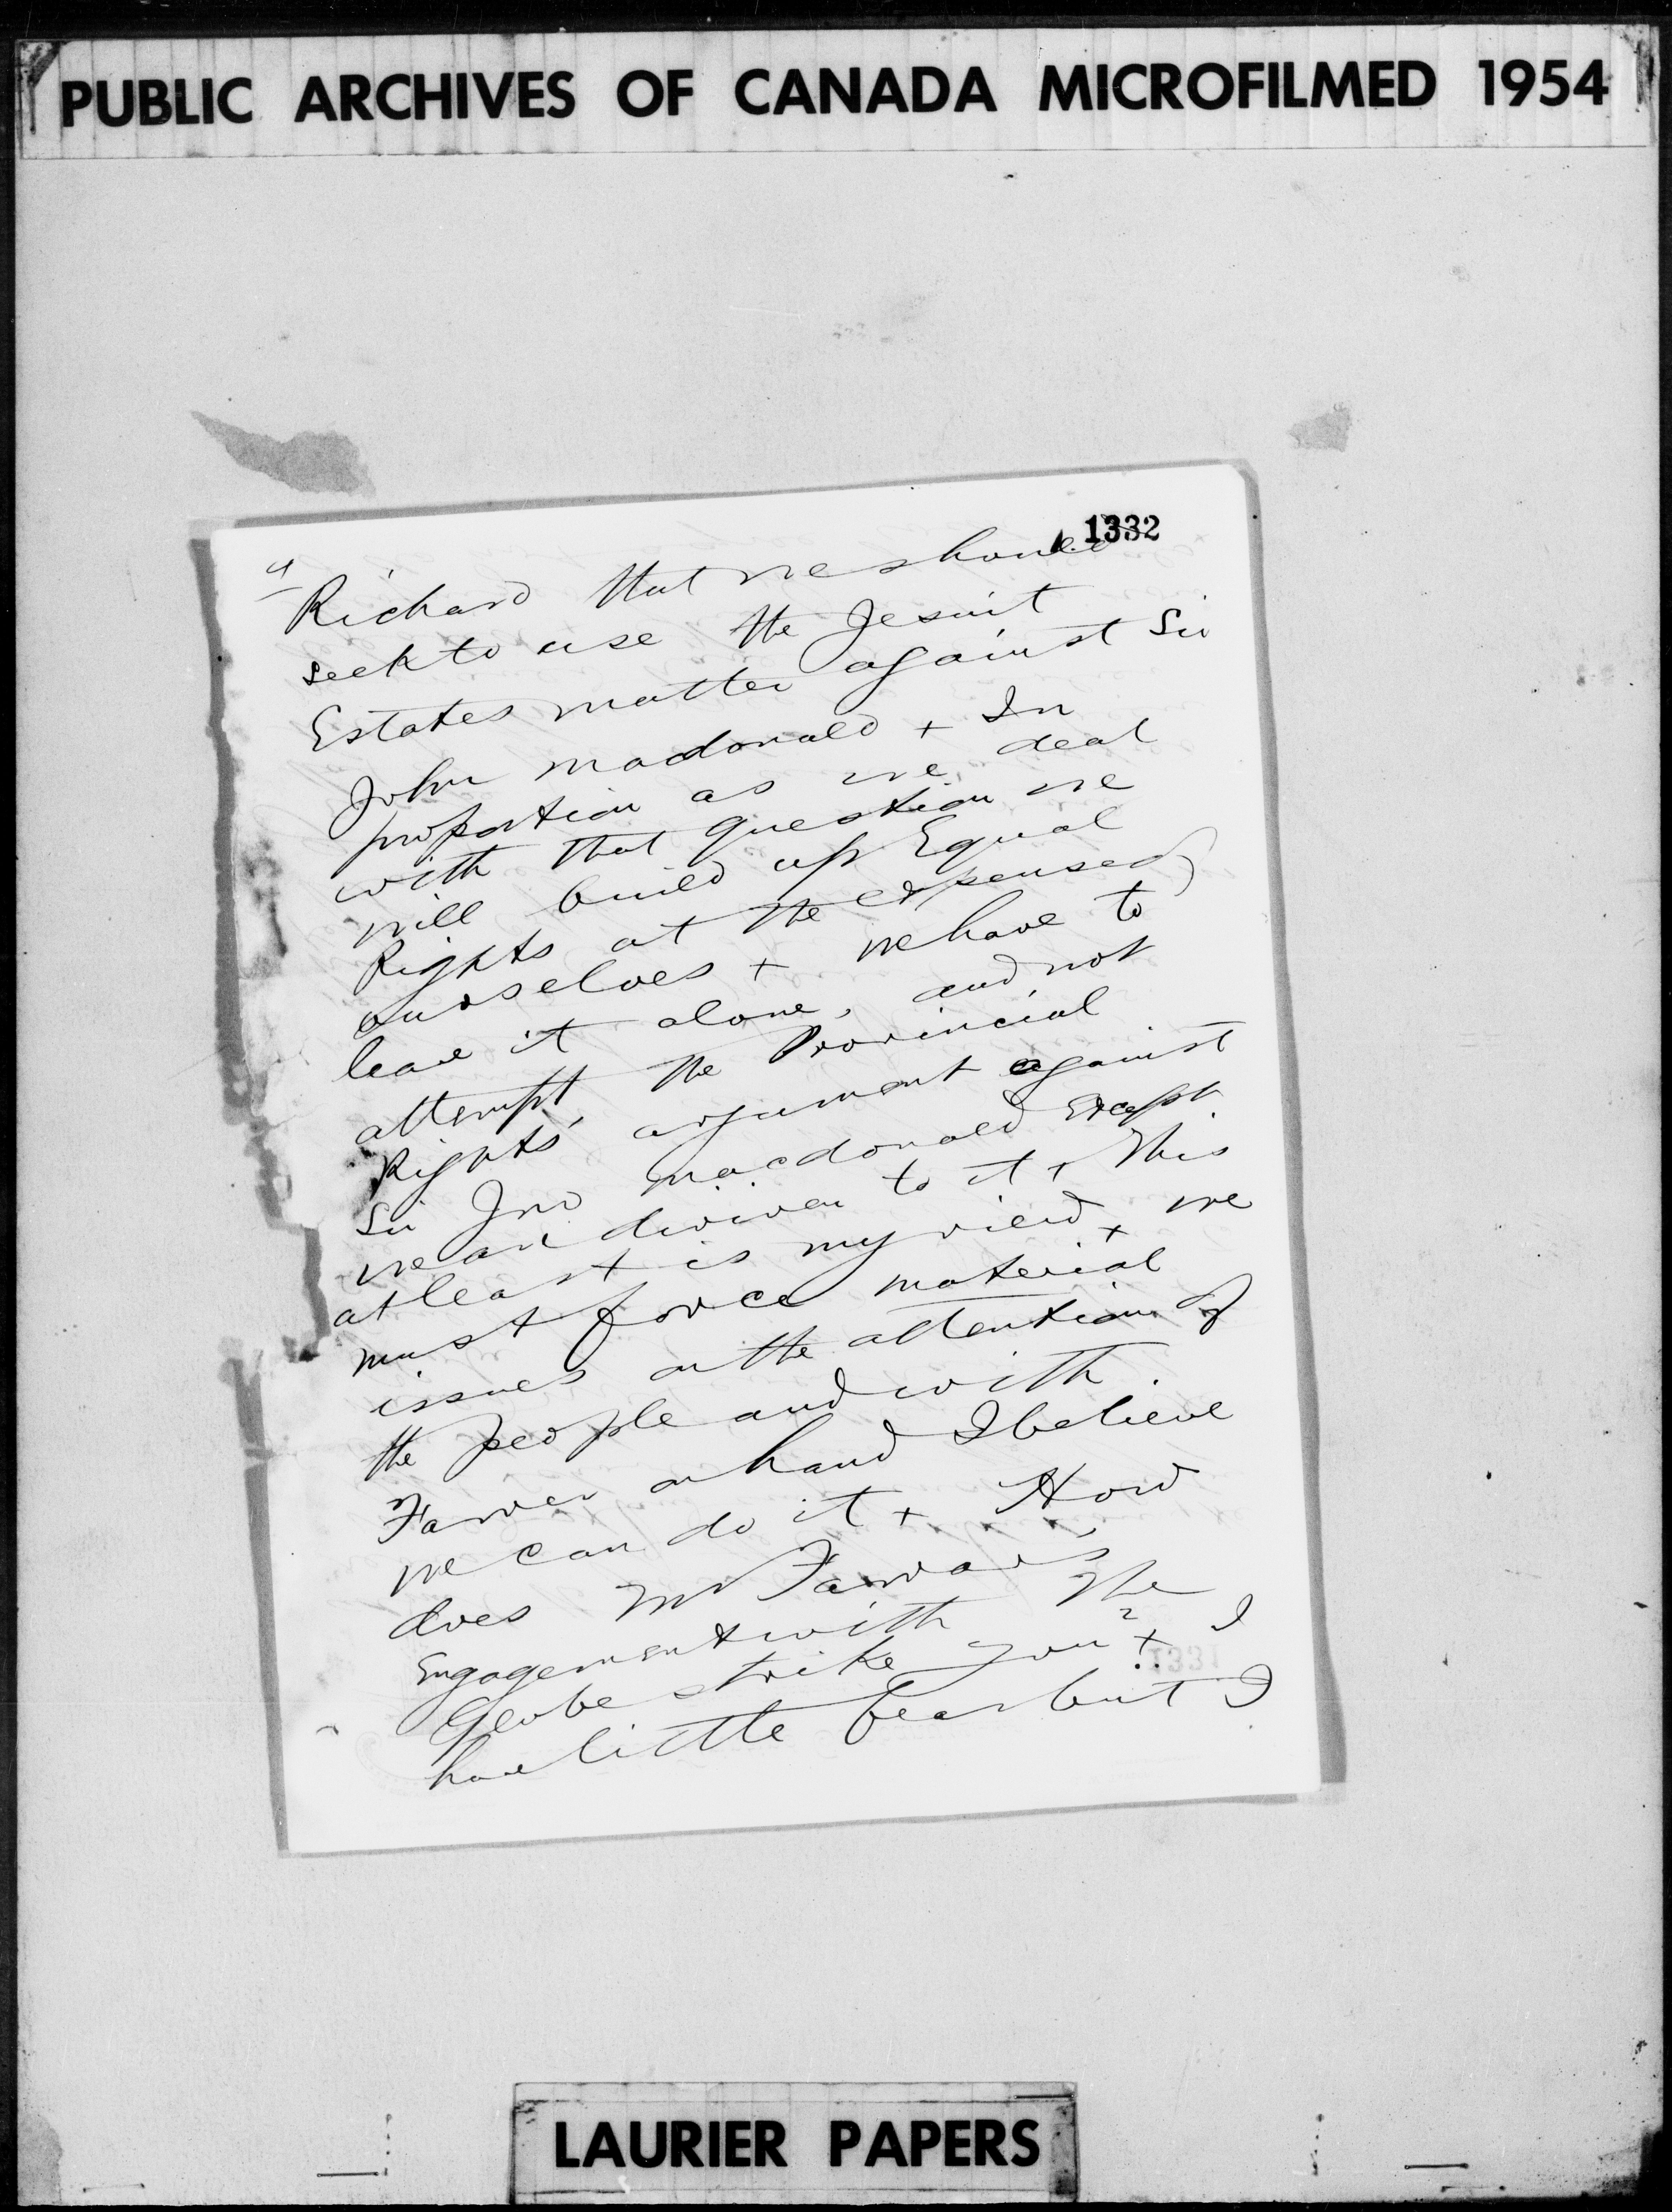 PUBLIC ARCHIVES OF CANADA MICROFILMED 1954
1332
Richard that we should
seek to use the Jesuit
Estates matter against Sir
John Macdonald + In
proportion as we deal
with that question we
will build up Equal
Rights at the expense of
ourselves + We have to
leave it alone, and not
attempt the Provincial
Rights' argument against
Sir Jno Macdonald except
we are driven to it + This
at least is my view + We
must force material
issues on the attention of
the people and with
Farrer on hand I believe
we can do it + How
does Mr Farrar's
Engagement with The
Globe strike you? + I
have little fear but I
1331
LAURIER PAPERS